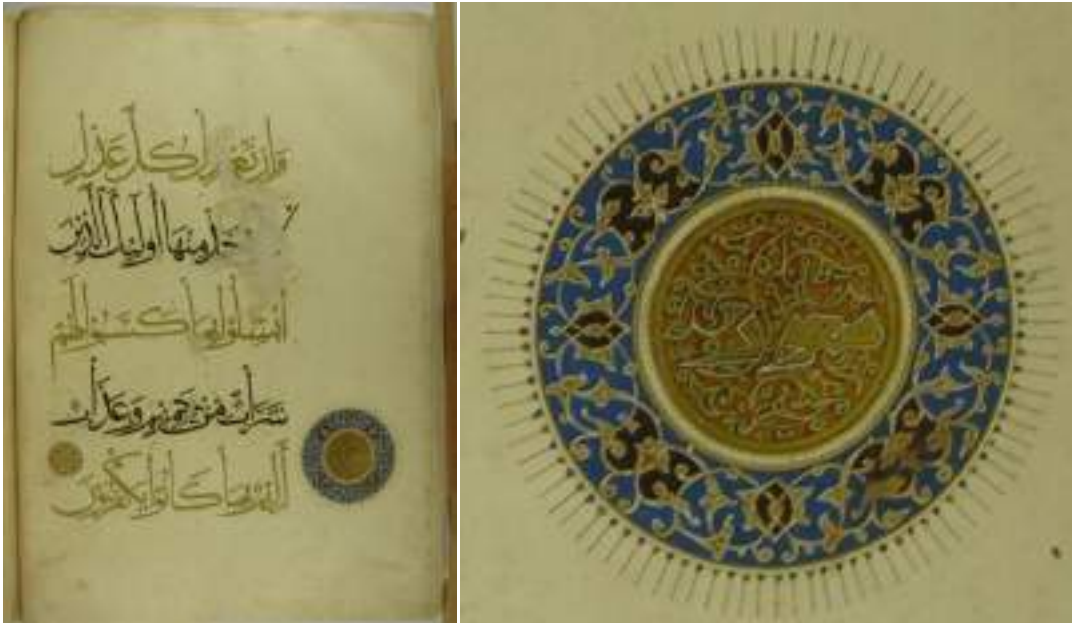 وَإِن تَعْدِلْ كُلَّ عَدْلٍ لَا
مِنْهَا أُولَٰئِكَ الَّذِينَ
أُبْسِلُوا بِمَا كَسَبُوا لَهُمْ
شَرَابٌ مِنْ حَمِيمٍ وَعَذَابٌ
أَلِيمٌ بِمَا كَانُوا يَكْفُرُونَ